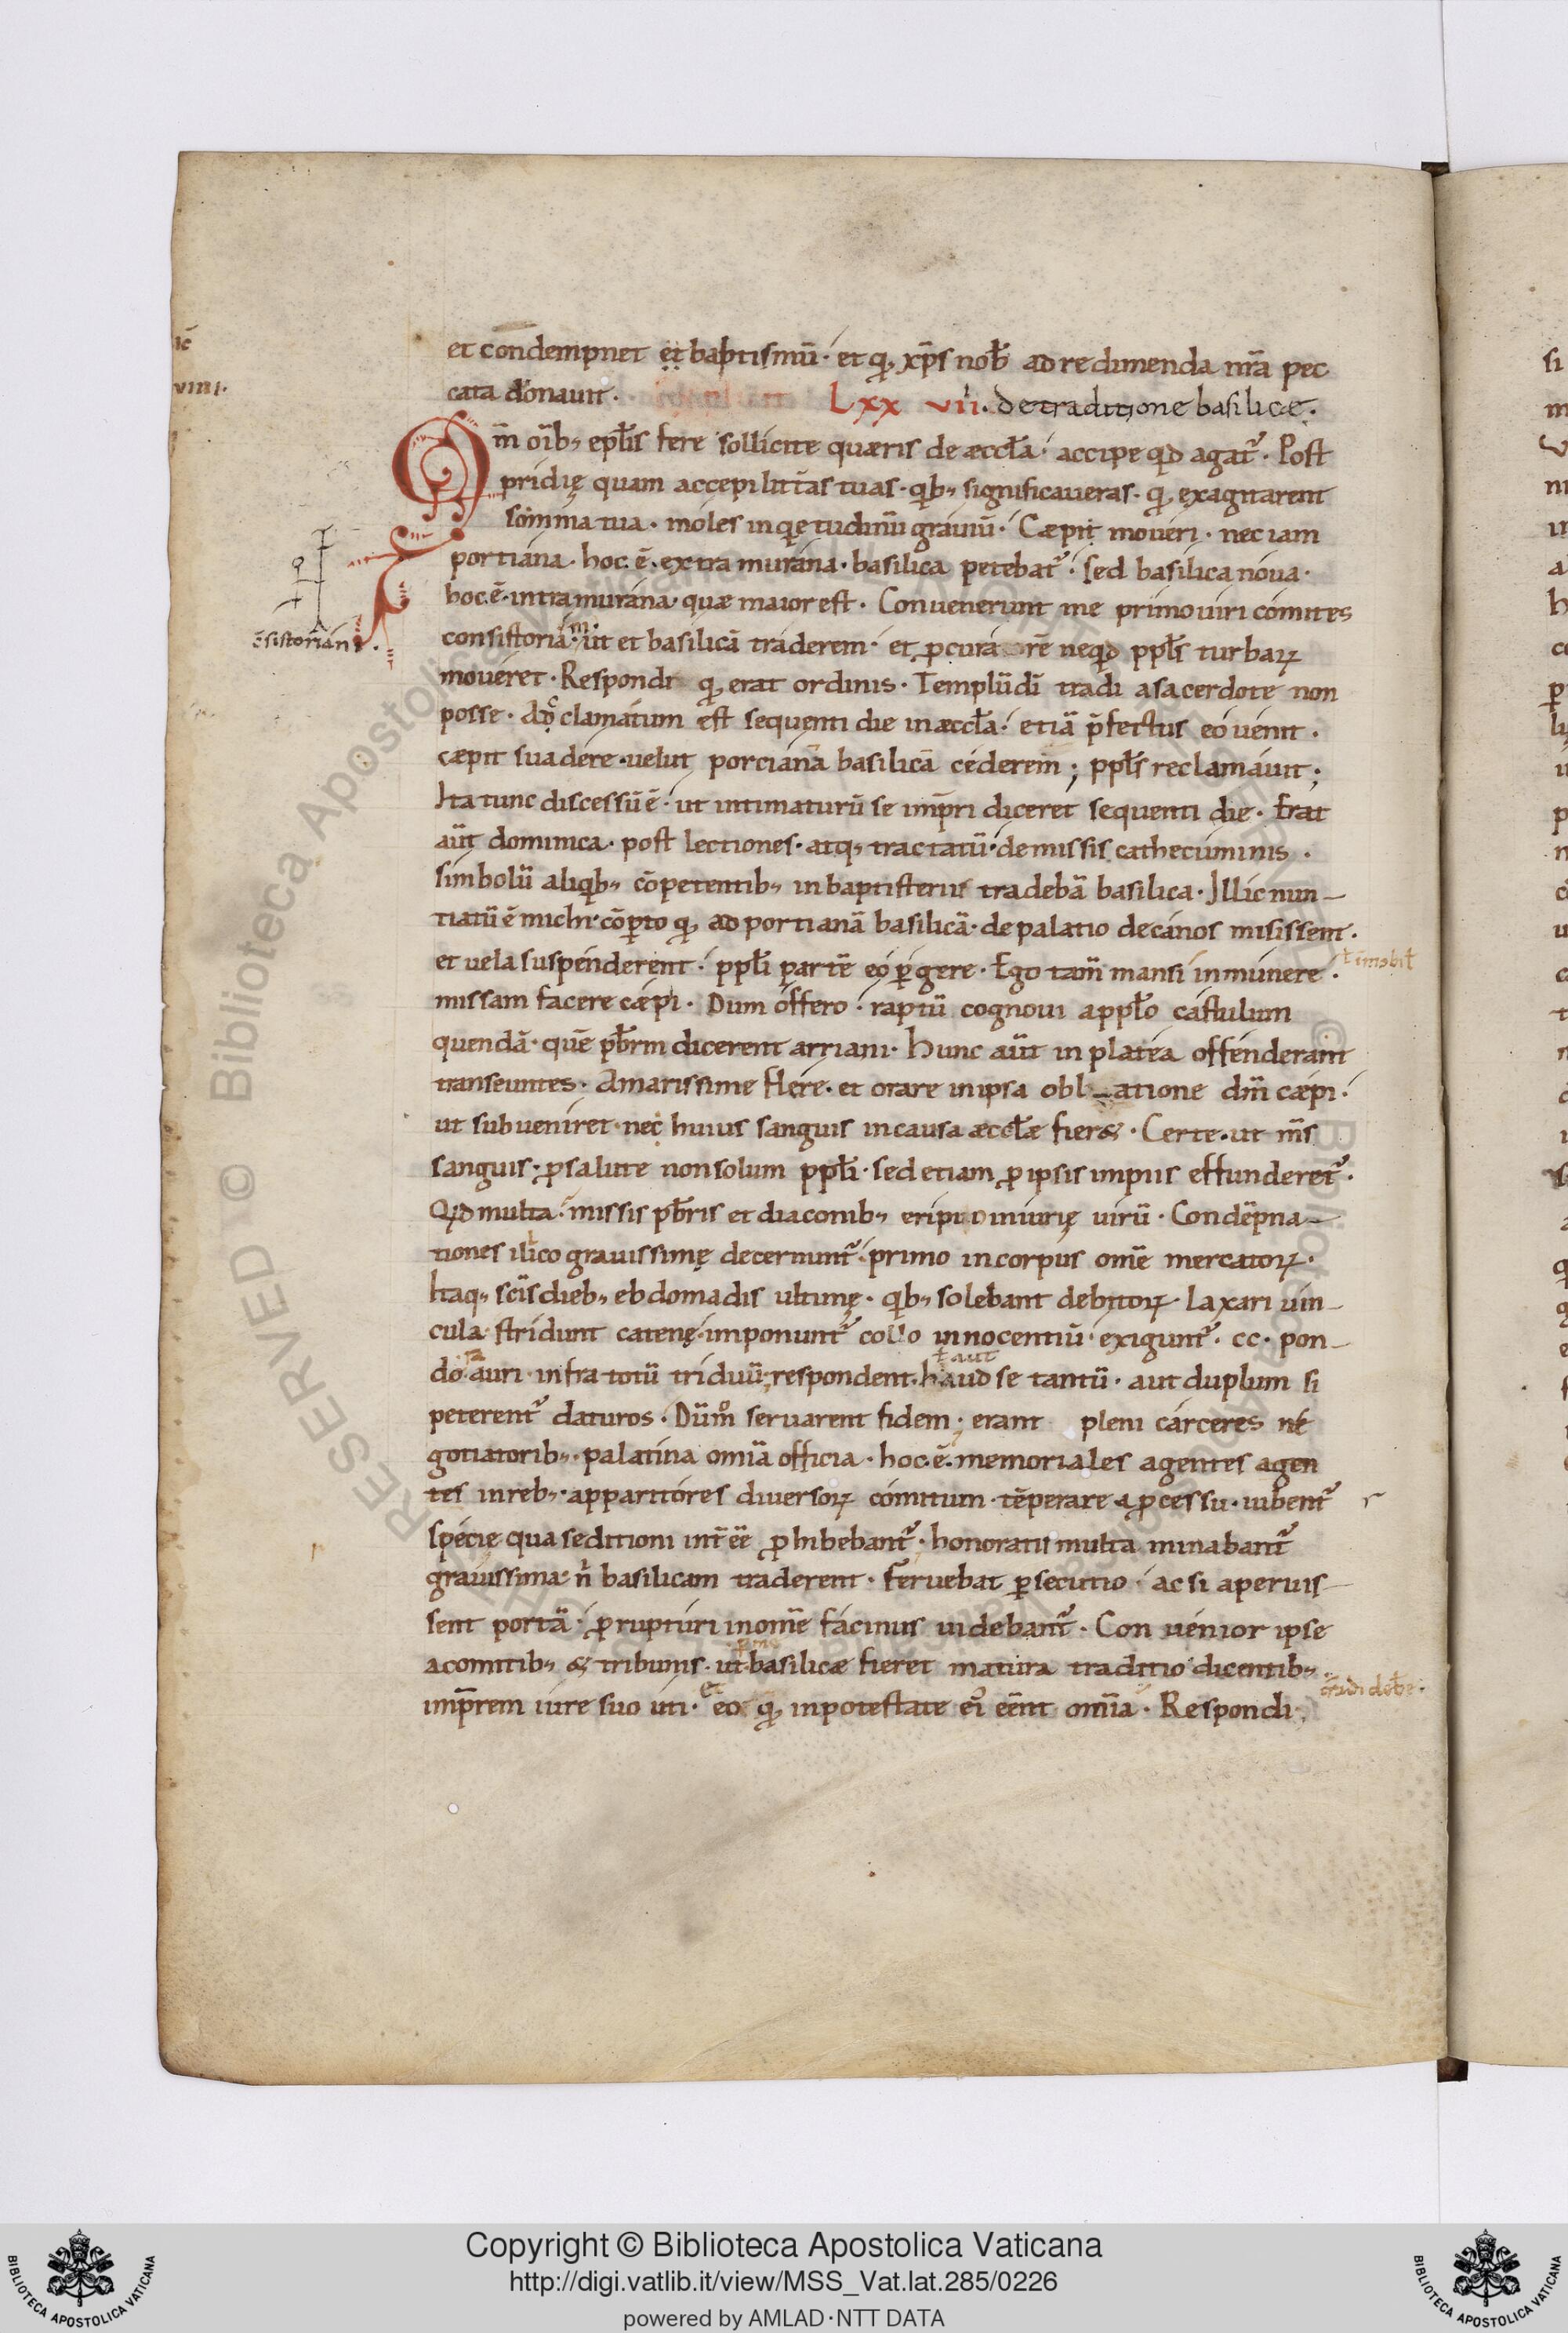 et condempnet et baptismū· et q, xp̄s nob̄ ad redimenda nr̄a pec
cata donauit· Lxx vii· de traditione basilicæ·
Qm̄ oīb; epl̄is fere sollicite quæris de æccl̄a· accipe qid agat᷑· Post
pridię quam accepi litt̄as tuas· qib; significaueras· q, exagitarent
somnia tua· moles inqietudinū grauiū· Cæpit moueri· nec iam
portiana· hoc·ē·extra murana· basilica petebat᷑· sed basilica noua·
hoc·ē·intramurana· quæ maior est· Conuenerunt me primo uiri comites
c̄sistoriani·
consistoria· ut et basilicā traderem· et ꝓcurarē neqid ppl̄s turbaꝝ
moueret· Respondi q, erat ordinis· Templū dī tradi a sacerdote non
posse· Adclamatum est sequenti die in æccl̄a· etiā p̄fectus eo uenit·
cæpit suadere· uelut porcianā basilicā cederem; ppl̄s reclamauit;
Ita tunc discessū ē· ut intimaturū se imp̄ri diceret sequenti die· Erat
aūt dominica· post lectiones· atq; tractatū· demissis cathecuminis·
simbolū aliqib; cōpetentib; in baptisteriis tradebā basilica· Illic nun-
tiatū ē michi· cōꝑto q, ad portianā basilicā· de palatio decanos misissent·
et uela suspenderent· ppl̄i partē eo ꝑgere· Ego tam̄ mansi in munere·
missam facere cæpi· Dum offero· raptū cognoui a ppl̄o castulum
quendā· quē pb̄rm dicerent arriani· hunc aūt in platea offenderant
transeuntes· Amarissime flere· et orare in ipsa oblatione dm̄ cæpi·
ut subueniret· nec huius sanguis in causa æccl̄æ fier&· Certe· ut m̄s
sanguis· ꝓ salute non solum ppl̄i· sed etiam ꝓ ipsis impiis effunderet᷑·
Qid multa· missis pb̄ris et diaconib; eripui iniurię uirū· Condēpna-
tiones ilico grauissimę decernunt᷑· primo in corpus om̄e mercatoꝝ·
Itaq; sc̄is dieb; ebdomadis ultimę· qib; solebant debitoꝝ laxari uin-
cula· stridunt catenę· imponunt᷑ collo innocentiū· exigunt᷑· cc· pon-
ł aut
do· auri· infra totū triduū· respondent· haud se tantū· aut duplum si
peterent᷑ daturos· Dūm̊ seruarent fidem· erant pleni carceres ne
gotiatorib;· palatina omīa officia· hoc·ē·memoriales agentes agen
tes in reb;· apparitores diuersoꝝ comitum· tēperare a ꝓcessu· iubent᷑
specie qua seditioni int̄ ēē ꝓhibebant᷑· honoratis multa minabant᷑
grauissima· n̄ basilicam traderent· Feruebat ꝑsecutio· ac si aperuis-
sent portā· ꝓrupturi in om̄e facinus uidebant᷑· Conuenior ipse
a comitib; & tribunis· ut basilicæ fieret matura traditio· dicentib;·
imp̄rem iure suo uti· eo q, in potestate eī eēnt omīa· Respondi·
Copyright © Biblioteca Apostolica Vaticana
http://digi.vatlib.it/view/MSS_Vat.lat.285/0226
powered by AMLAD·NTT DATA